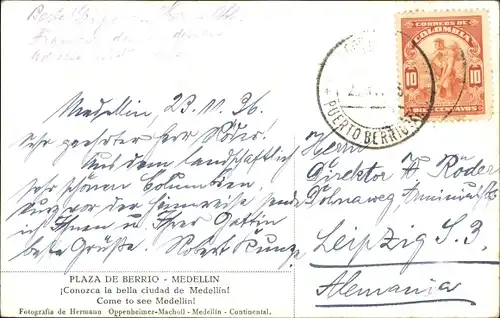 CORREOS DE
COLOMBIA
10 10
DIEZ CENTAVOS
PUERTO BERRIO
Medellin, 23.11.36
Sehr geehrter Herr Röder!
Aus dem landschaftlich
sehr schönen Columbien,
kurz vor der Heimreise sende
ich Ihnen u. Ihrer Gattin
beste Grüße. Robert Kunze
Herrn
Direktor A. Röder
Leipzig S. 3.
Alemania
PLAZA DE BERRIO - MEDELLIN
¡Conozca la bella ciudad de Medellin!
Come to see Medellin!
Fotografia de Hermann Oppenheimer-Macholl - Medellin - Continental.